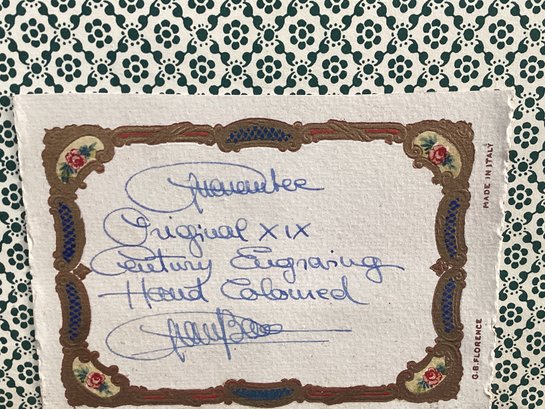 Guarantee
Original XIX
Century Engraving
Hand Coloured
MADE IN ITALY
G.B. FLORENCE